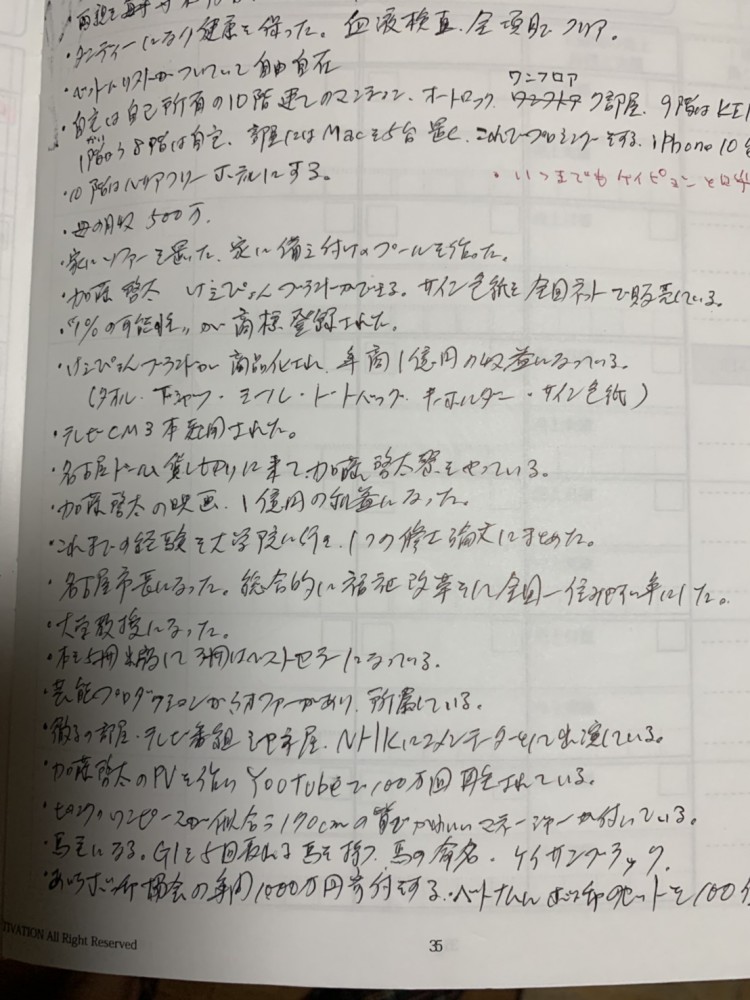 ・ダンディーになり健康を保った。血液検査、全項目クリア。
・ペットトリストがついていて自由自在
ワンフロア
・自宅は自己所有の10階建てのマンション、オートロック、7部屋。9階はKEI
1階から8階は自宅。部屋にはMacを5台置く。これでプログラミングをする。iPhone10
・10階はバリアフリーホテルにする。
・いつまでもケイピョンと
・母の月収500万。
・家にソファーを置いた、家に備え付けのプールを作った。
・加藤啓太 けえぴょんブランドができる。サイン色紙を全国ネットで販売している。
・"1%の可能性"が商標登録された。
・けえぴょんブランドが商品化され、年商1億円の収益になっている。
(タオル・Tシャツ・シール・トートバック・キーホルダー・サイン色紙)
・テレビCM3本起用された。
・名古屋ドーム貸し切りに来て、加藤啓太祭をやっている。
・加藤啓太の映画、1億円の利益になった。
・これまでの経験を大学院に行き、1つの修士論文にまとめた。
・名古屋市長になった。総合的に福祉改革をして全国一住みやすい街にした。
・大学教授になった。
・本を5冊出版して3冊はベストセラーになっている。
・芸能プロダクションからオファーがあり、所属している。
・徹子の部屋・テレビ番組、NHKにコメンテーターとして出演している。
・加藤啓太のPVを作りYOUTubeで100万回再生されている。
・ピンクのワンピースが似合う170cmの かわいいマネージャーが付いている。
・馬主になる。G1を5回取れる馬を持つ、馬の命名・ケイサンブラック。
・あいちボッチャ協会の年間1000万円寄付をする。・ベトナムにボッチャのセットを100
TIVATION All Right Reserved
35